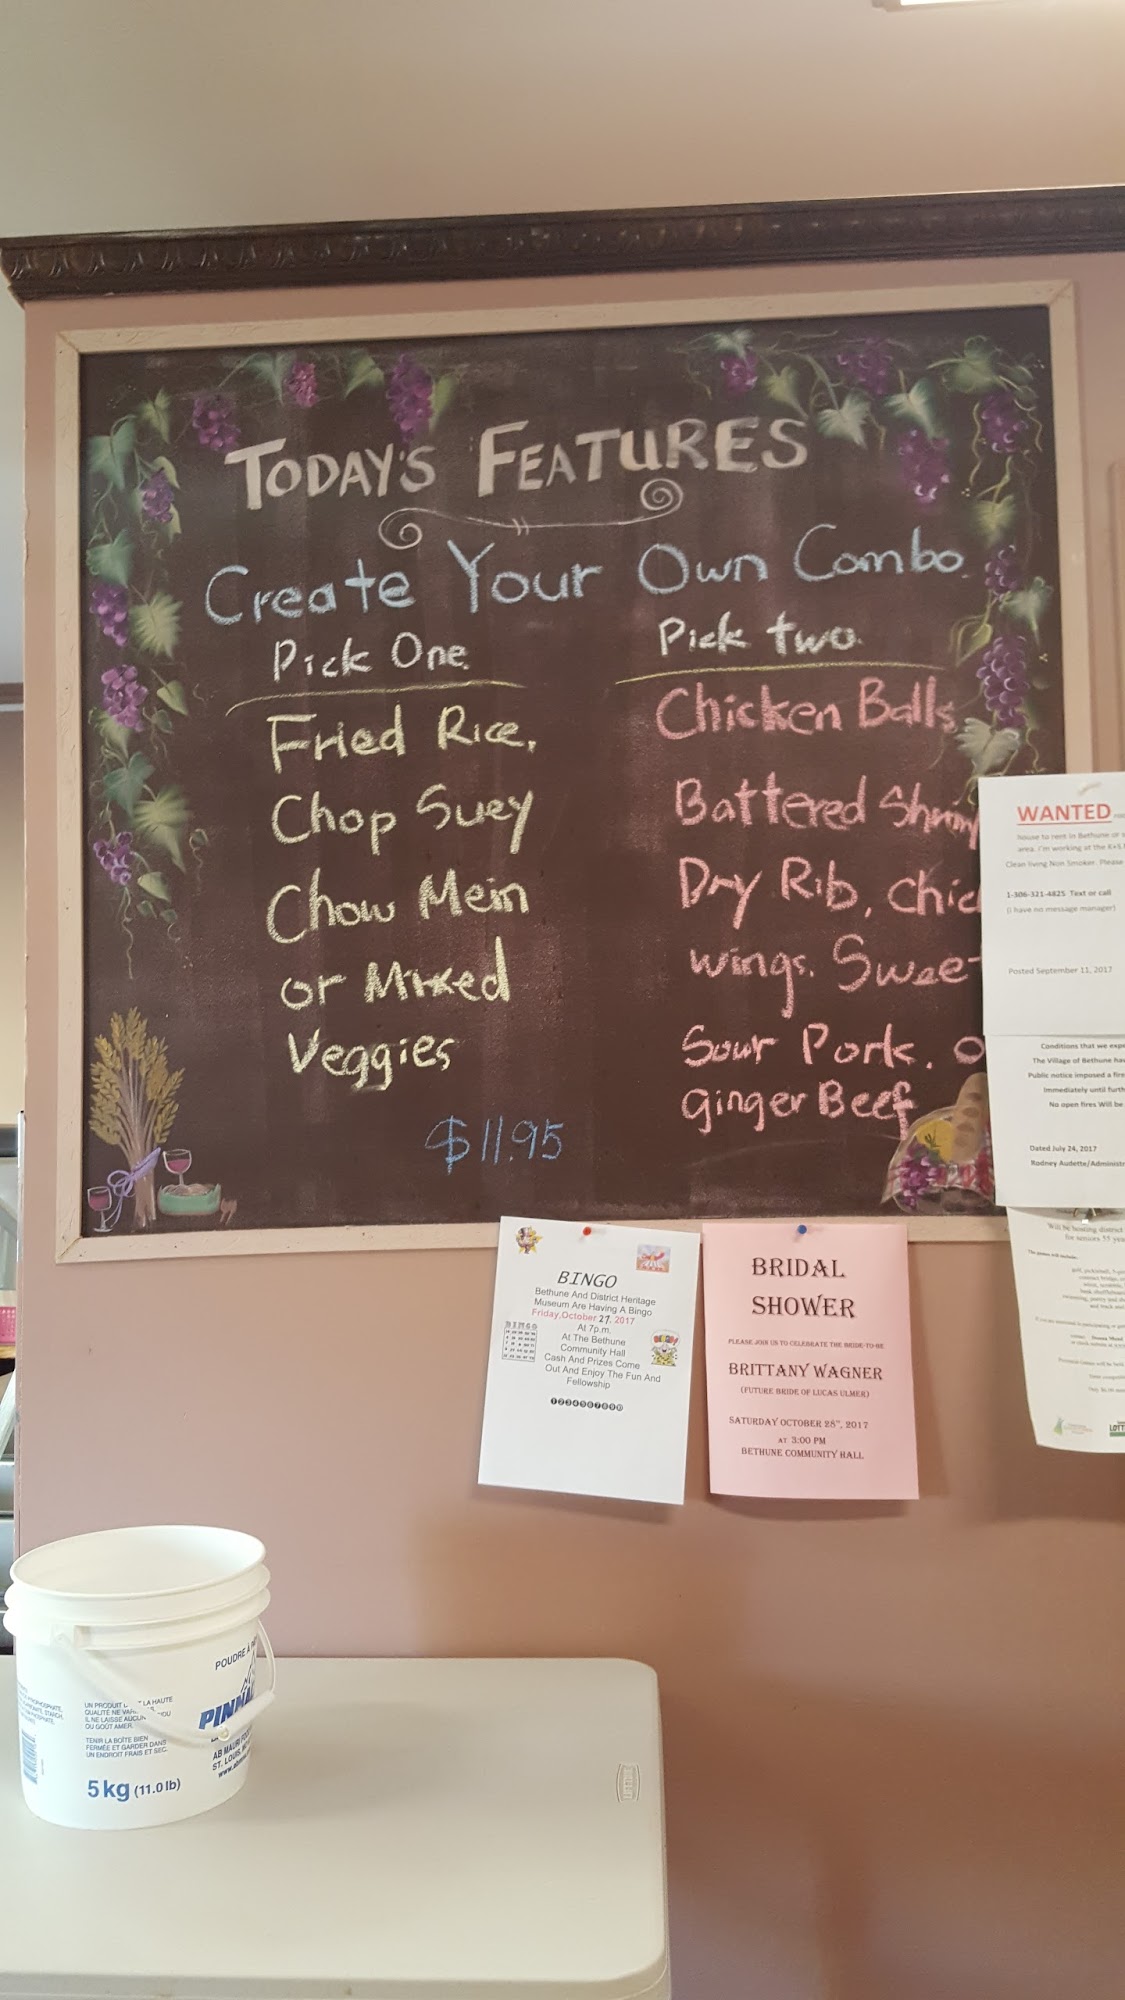 TODAY'S FEATURES
Create Your Own Combo.
Pick One.
Fried Rice,
Chop Suey
Chow Mein
or Mixed
Veggies
$11.95
Pick two.
Chicken Balls
Battered Shrimp
Dry Rib, Chic
wings. Sweet
Sour Pork. o
ginger Beef
WANTED
house to rent in Bethune or
area. I'm working at the
Clean living Non Smoker. Please
1-306-321-4825 Text or call
(i have no message manager)
Posted September 11, 2017
Conditions that we expe
The Village of Bethune ha
Public notice imposed a fire
Immediately until furth
No open fires Will be
Dated July 24, 2017
Rodney Audette/Administr
Will be hosting district
for seniors 55 yea
BINGO
Bethune And District Heritage
Museum Are Having A Bingo
Friday, October 27, 2017
At 7p.m.
At The Bethune
Community Hall
Cash And Prizes Come
Out And Enjoy The Fun And
Fellowship
1 2 3 4 5 6 7 8 9 10
BINGO
BRIDAL
SHOWER
PLEASE JOIN US TO CELEBRATE THE BRIDE-TO-BE
BRITTANY WAGNER
(FUTURE BRIDE OF LUCAS ULMER)
SATURDAY OCTOBER 28TH, 2017
AT 3:00 PM
BETHUNE COMMUNITY HALL
POUDRE À
PINNA
UN PRODUIT LA HAUTE
QUALITÉ NE
IL NE LAISSE AUCUN OU
OU GOÛT AMER.
TENIR LA BOÎTE BIEN
FERMÉE ET GARDER DANS
UN ENDROIT FRAIS ET SEC.
AB MAURI FOO
ST. LOUIS,
www.
5 kg (11.0 lb)
LIFETIME